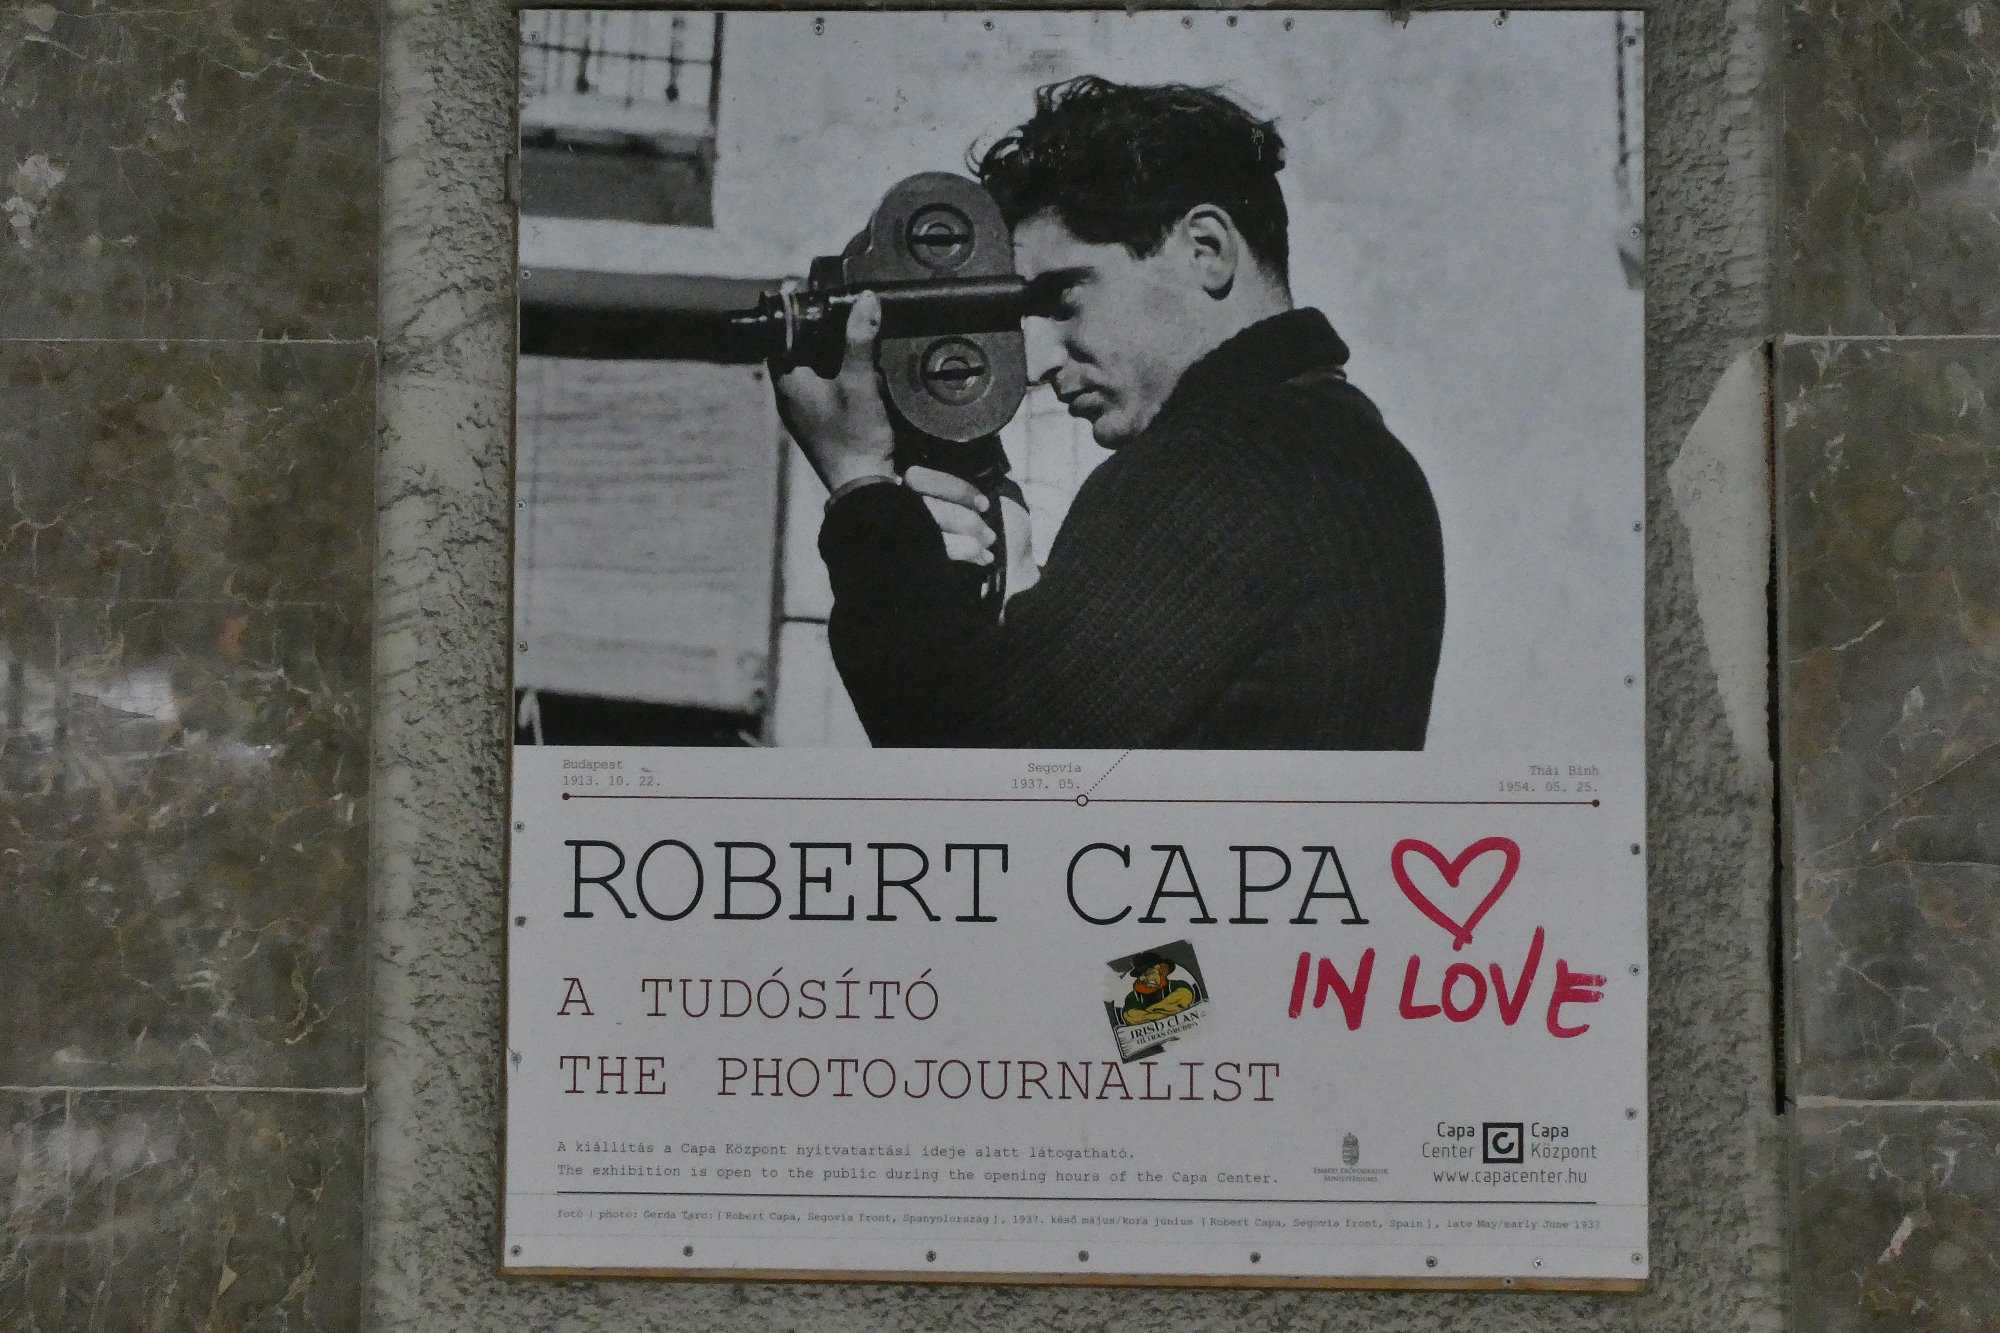 Budapest
1913. 10. 22.
Segovia
1937. 05.
Thái Binh
1954. 05. 25.
ROBERT CAPA
IN LOVE
A TUDÓSÍTÓ
IRISH CLAN
THE PHOTOJOURNALIST
A kiállítás a Capa Központ nyitvatartási ideje alatt látogatható.
The exhibition is open to the public during the opening hours of the Capa Center.
EMBERI ERŐFORRÁSOK
MINISZTÉRIUMA
Capa Center
Capa Központ
www.capacenter.hu
fotó | photo: Gerda Taro: [ Robert Capa, Segovia front, Spanyolország ], 1937. késő május/kora június [ Robert Capa, Segovia front, Spain ], late May/early June 1937